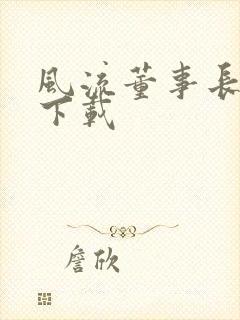 風流董事長
下載
詹欣